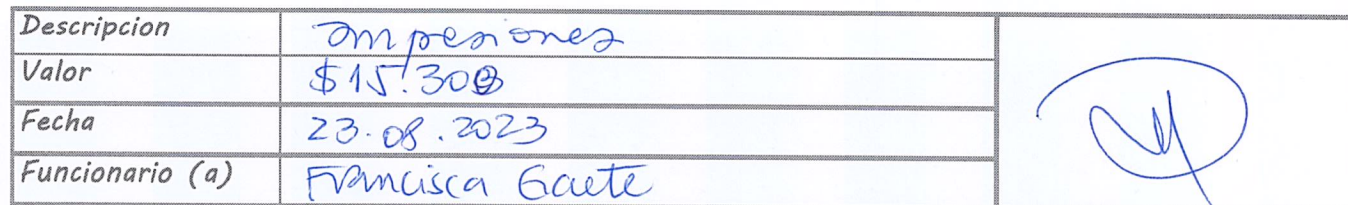 Descripcion Impresiones
Valor $15.300
Fecha 23.08.2023
Funcionario (a) Francisca Gaete